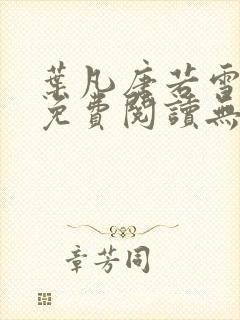 葉凡唐若雪
免費閱讀無
章芳同